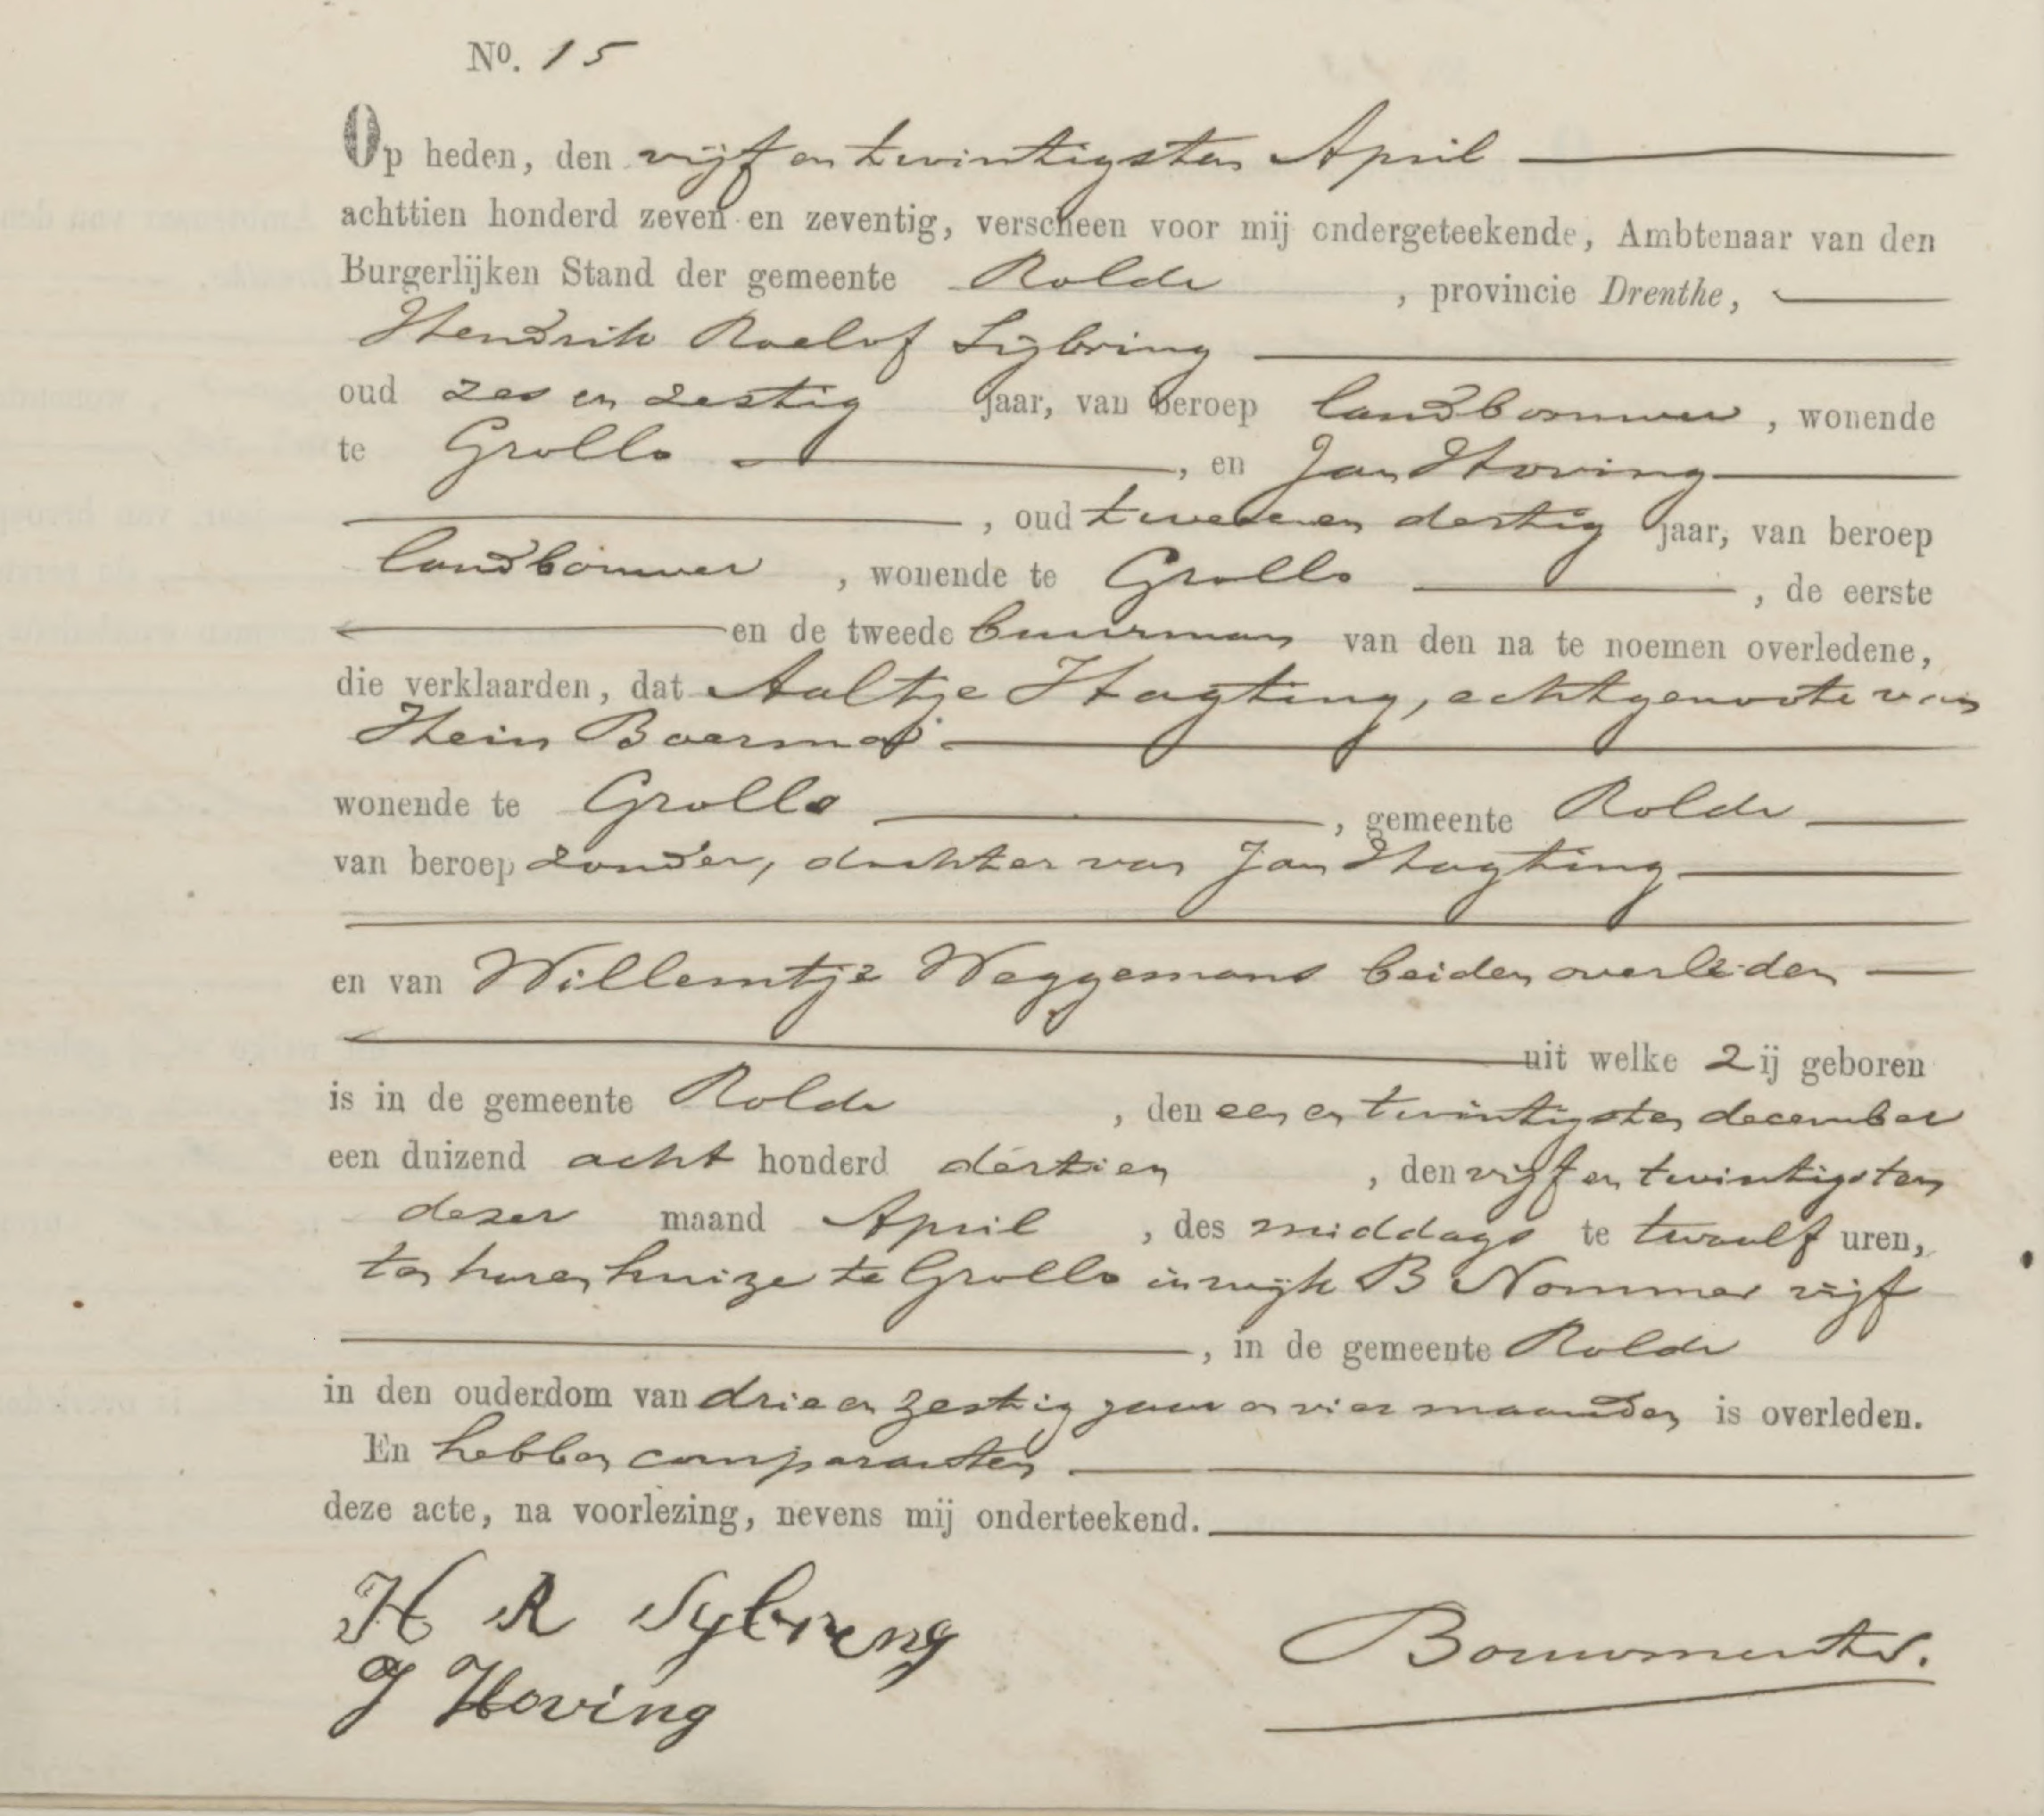 No. 15
Op heden, den vijf en twintigsten April
achttien honderd zeven en zeventig, verscheen voor mij ondergeteekende, Ambtenaar van den
Burgerlijken Stand der gemeente Rolde, provincie Drenthe,
Hendrik Roelof Sijbring
oud zes en zestig jaar, van beroep landbouwer, wonende
te Grollo, en Jan Hoving
, oud twee en dertig jaar, van beroep
landbouwer, wonende te Grollo, de eerste
en de tweede buurman van den na te noemen overledene,
die verklaarden, dat Aaltje Hagting, echtgenoote van
Hein Boerma
wonende te Grollo, gemeente Rolde
van beroep zonder, dochter van Jan Hagting
en van Willemtje Weggemans beiden overleden
uit welke zij geboren
is in de gemeente Rolde, den een en twintigsten december
een duizend acht honderd dertien, den vijf en twintigsten
dezer maand April, des middags te twaalf uren,
ten haren huize te Grollo in wijk B Nommer vijf
, in de gemeente Rolde
in den ouderdom van drie en zestig jaar en vier maanden is overleden.
En hebben comparanten
deze acte, na voorlezing, nevens mij onderteekend.
H R Sybring
J Hoving